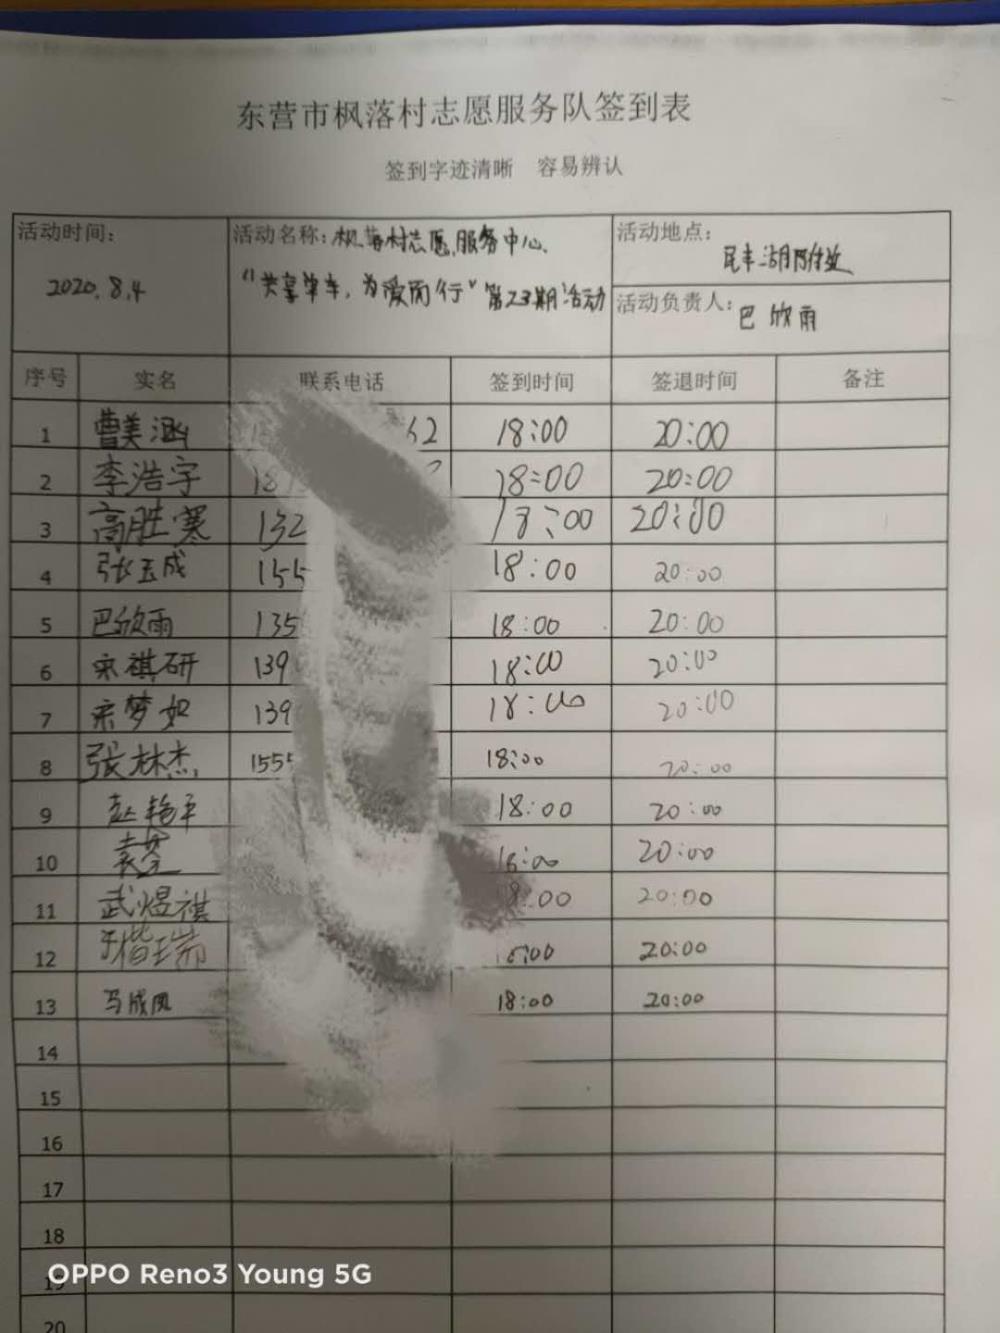 东营市枫落村志愿服务队签到表
签到字迹清晰 容易辨认
活动时间: 活动名称: 枫落村志愿服务中心 活动地点:
2020.8.4 "共享单车,为爱而行"第23期活动 民丰湖附近
活动负责人: 巴欣雨
序号 实名 联系电话 签到时间 签退时间 备注
1 曹美涵 62 18:00 20:00
2 李浩宇 18:00 20:00
3 高胜寒 132 18:00 20:00
4 张玉成 155 18:00 20:00
5 巴欣雨 135 18:00 20:00
6 宋祺研 139 18:00 20:00
7 宋梦如 139 18:00 20:00
8 张林杰 155 18:00 20:00
9 赵艳平 18:00 20:00
10 20:00
11 武煜祺 8:00 20:00
12 20:00
13 马成凤 18:00 20:00
14
15
16
17
18
19
20
OPPO Reno3 Young 5G